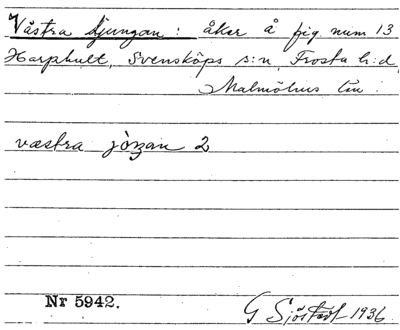 Västra Ljungan: åker å fig num 13
Harphult, Svensköps s:n, Frosta h:d,
Malmöhus län.
væstra jòŋan 2
Nr 5942.
G Sjöstedt 1936.